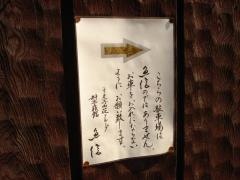 こちらの駐車場は
魚信のではありません。
お車をお入れにならない
ように、お願い致します。
魚信